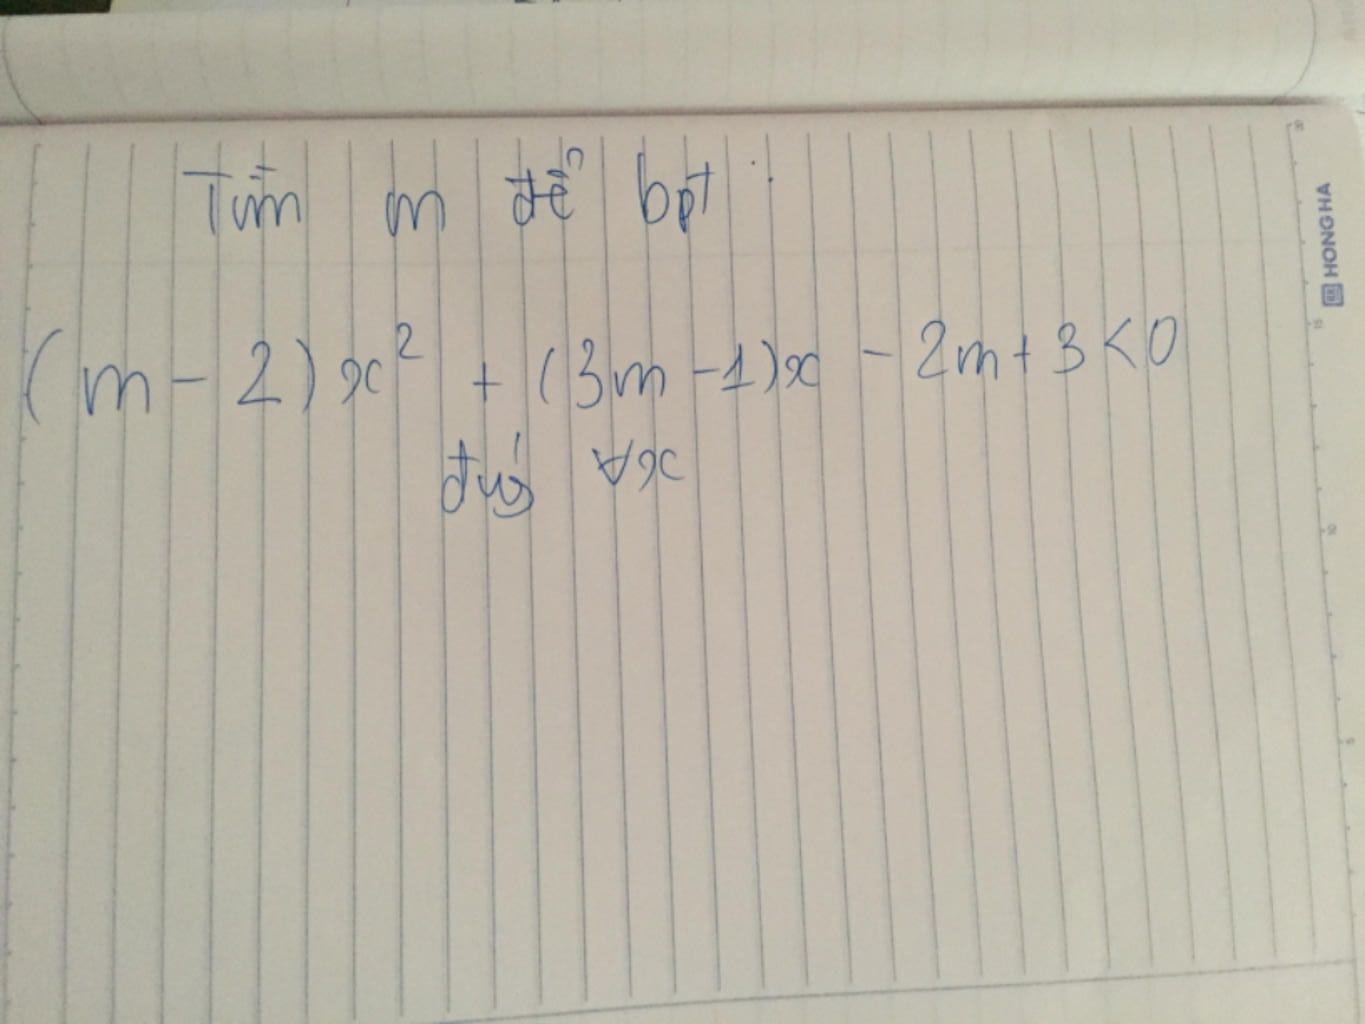 Tìm m để bpt :
(m - 2)x² + (3m - 1)x - 2m + 3 < 0
đúg ∀x
HONG HA